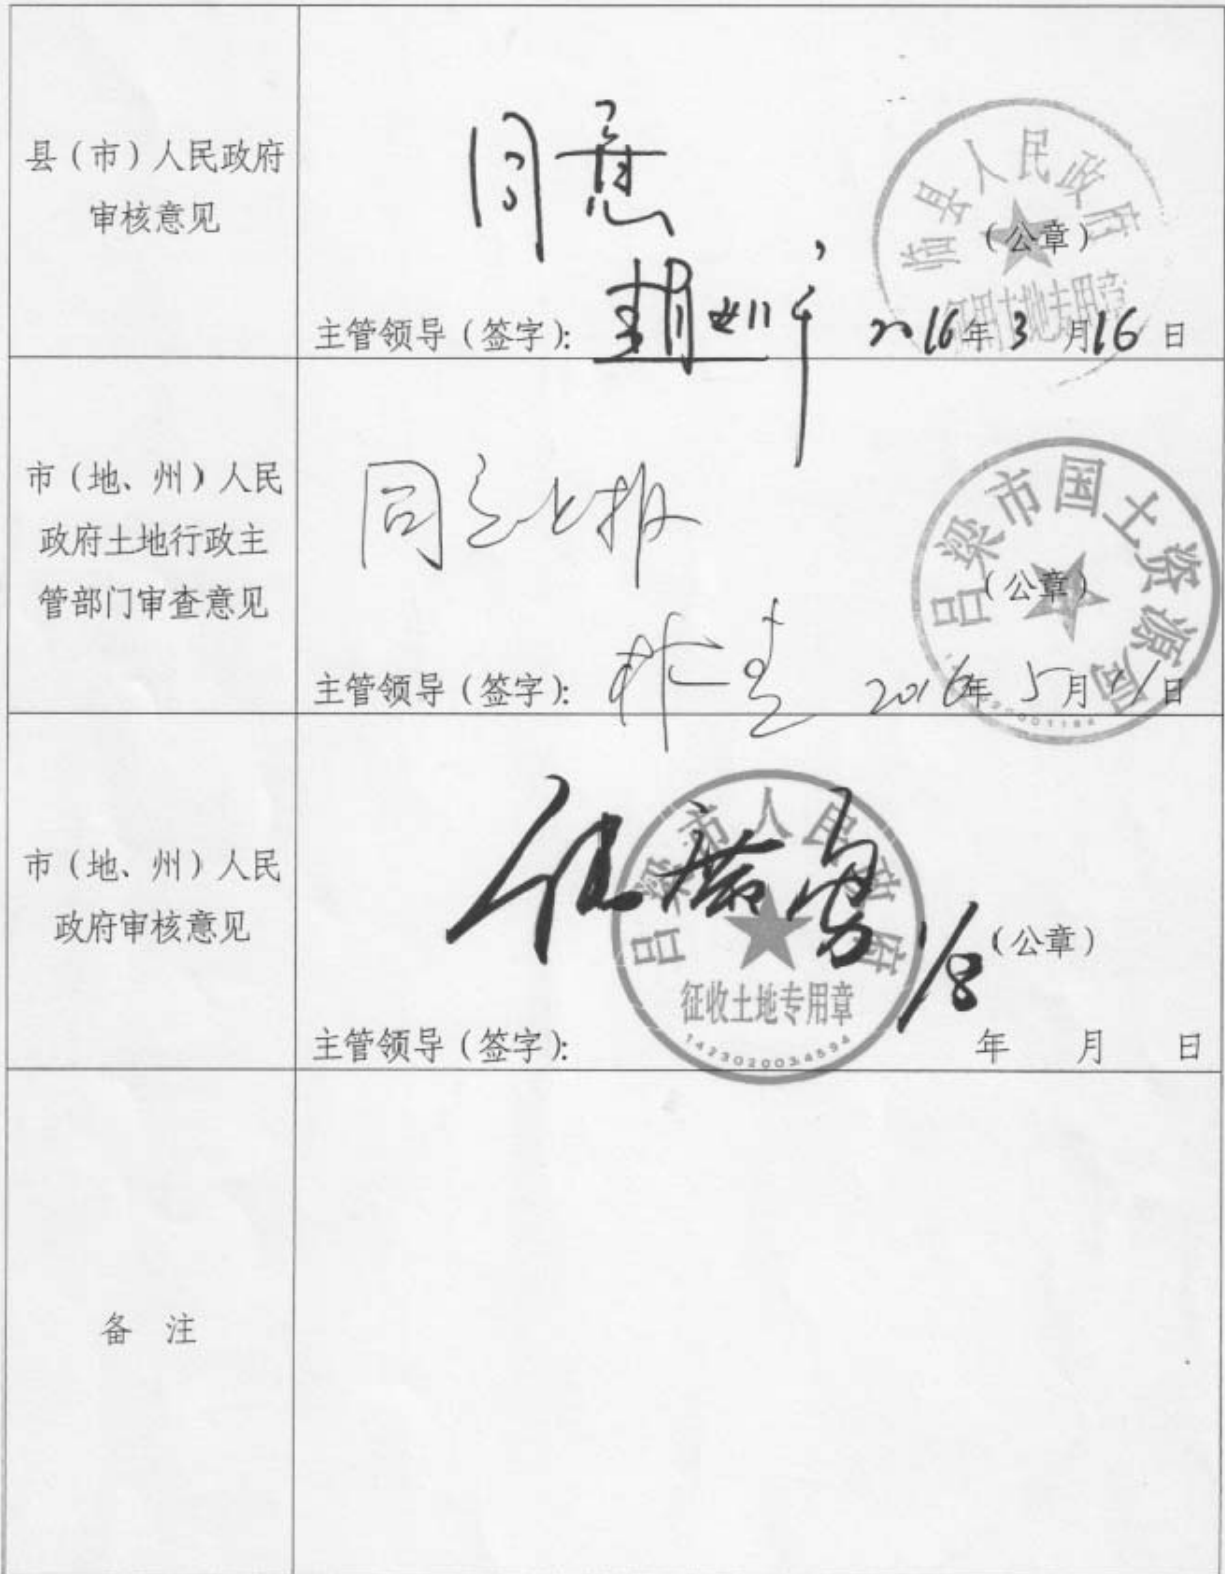 县(市)人民政府
审核意见
同意
临县人民政府
(公章)
主管领导(签字):
2016年3月16日
市(地、州)人民
政府土地行政主
管部门审查意见
同意上报
吕梁市国土资源局
(公章)
主管领导(签字):
2016年5月日
市(地、州)人民
政府审核意见
吕梁市人民政府
征收土地专用章
1423020034594
(公章)
主管领导(签字):
年 月 日
备 注